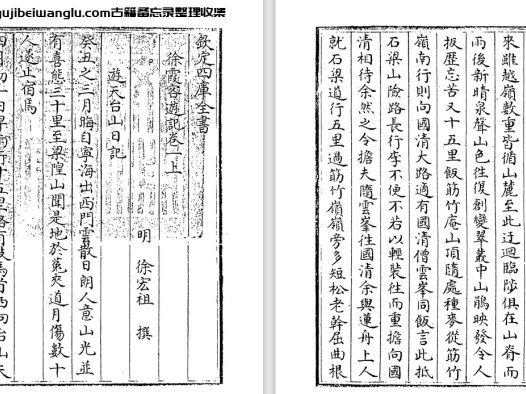 gujibeiwanglu.com古籍备忘录整理收集
欽定四庫全書
徐霞客遊記卷一上
明 徐宏祖 撰
遊天台山日記
癸丑之三月晦自寧海出西門雲散日朗人意山光並
有喜態三十里至梁隍山聞是地於菟夾道月傷數十
人遂止宿焉
四月初一日早雨行十五里路有岐馬首西向台山天
來雖越嶺數重皆循山麓至此迂迴臨陟俱在山脊而
雨後新晴泉聲山色往復創變翠叢中山鵑映發令人
扳歷忘苦又十五里飯筋竹庵山頂隨處種麥從筋竹
嶺南行則向國清大路適有國清僧雲峯同飯言此抵
石梁山險路長行李不便不若以輕裝往而重擔向國
清相待余然之令擔夫隨雲峯往國清余與蓮舟上人
就石梁道行五里過筋竹嶺嶺旁多短松老幹屈曲根